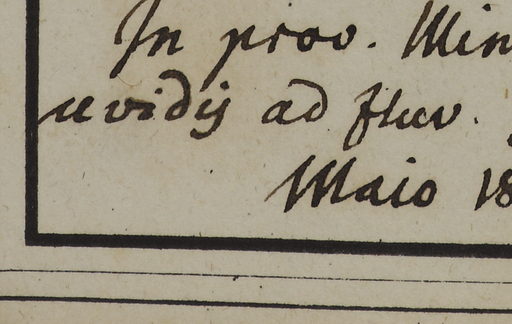 In prov. Min
uvidis ad fluv.
Maio 18